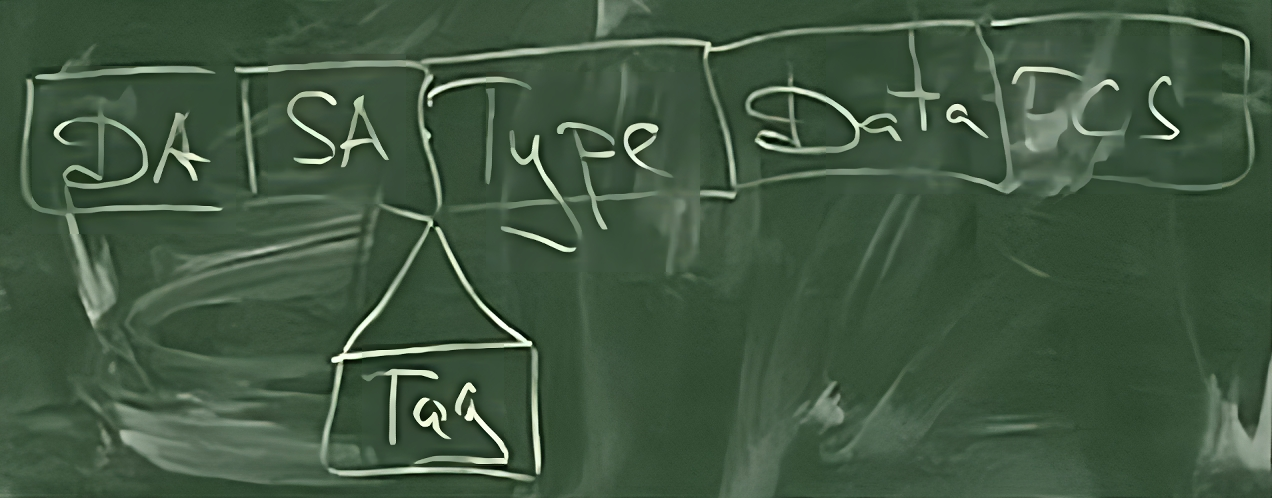 DA SA Type Data FCS
Tag